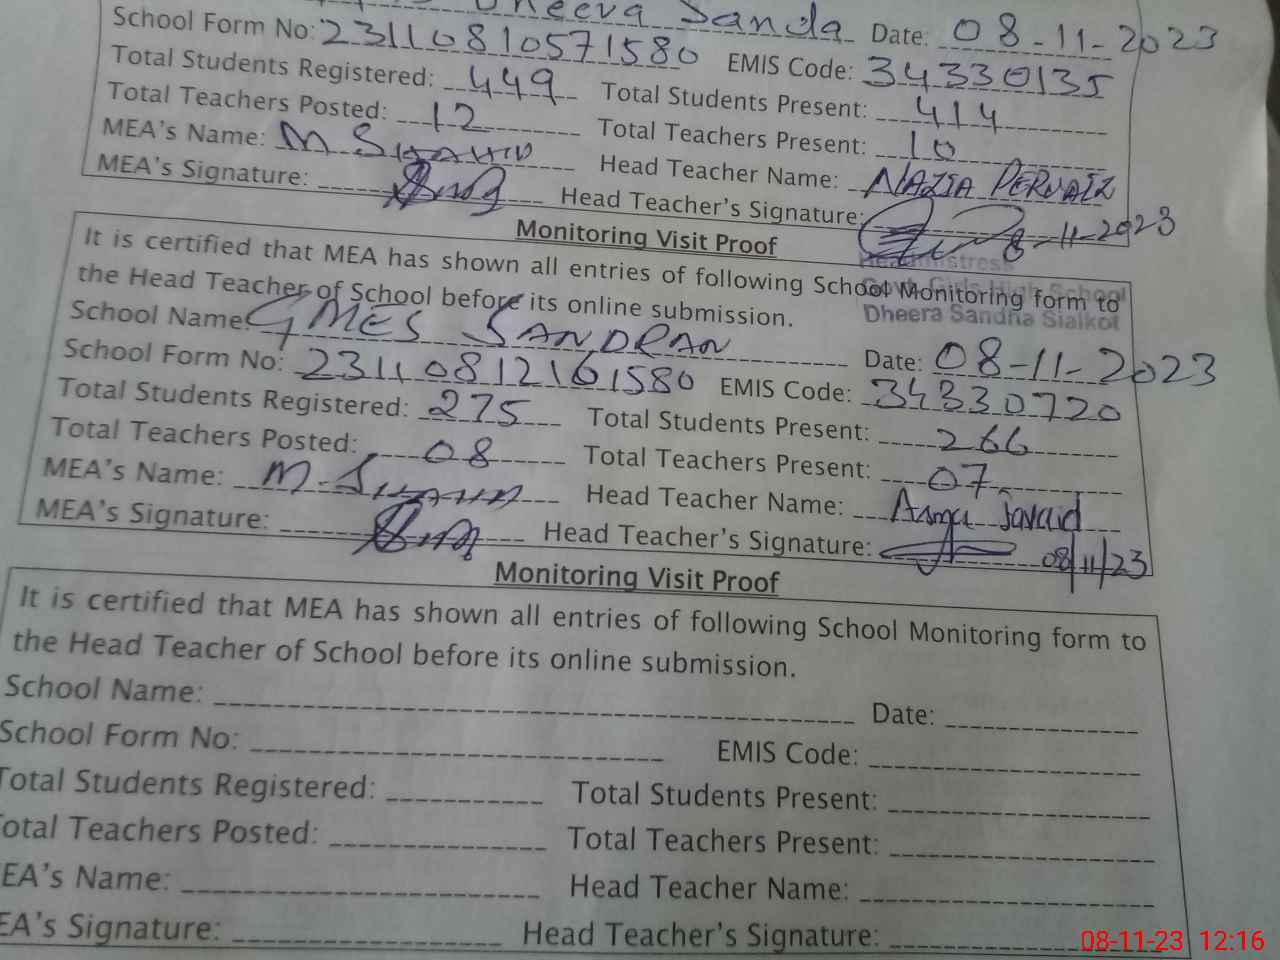 Dheeva Sanda Date: 08-11-2023
School Form No: 23110810571580 EMIS Code: 34330135
Total Students Registered: 449 Total Students Present: 414
Total Teachers Posted: 12 Total Teachers Present: 10
MEA's Name: M SHAHID Head Teacher Name: NAZIA PERVAIZ
MEA's Signature: Head Teacher's Signature: 8-11-2023
Headmistress
Govt. Girls High School
Dheera Sandha Sialkot
Monitoring Visit Proof
It is certified that MEA has shown all entries of following School Monitoring form to
the Head Teacher of School before its online submission.
School Name: GMES SANDRAN Date: 08-11-2023
School Form No: 23110812161580 EMIS Code: 34330720
Total Students Registered: 275 Total Students Present: 266
Total Teachers Posted: 08 Total Teachers Present: 07
MEA's Name: M. SHAHID Head Teacher Name: Asma Javaid
MEA's Signature: Head Teacher's Signature: 08/11/23
Monitoring Visit Proof
It is certified that MEA has shown all entries of following School Monitoring form to
the Head Teacher of School before its online submission.
School Name: Date:
School Form No: EMIS Code:
Total Students Registered: Total Students Present:
Total Teachers Posted: Total Teachers Present:
EA's Name: Head Teacher Name:
EA's Signature: Head Teacher's Signature:
08-11-23 12:16